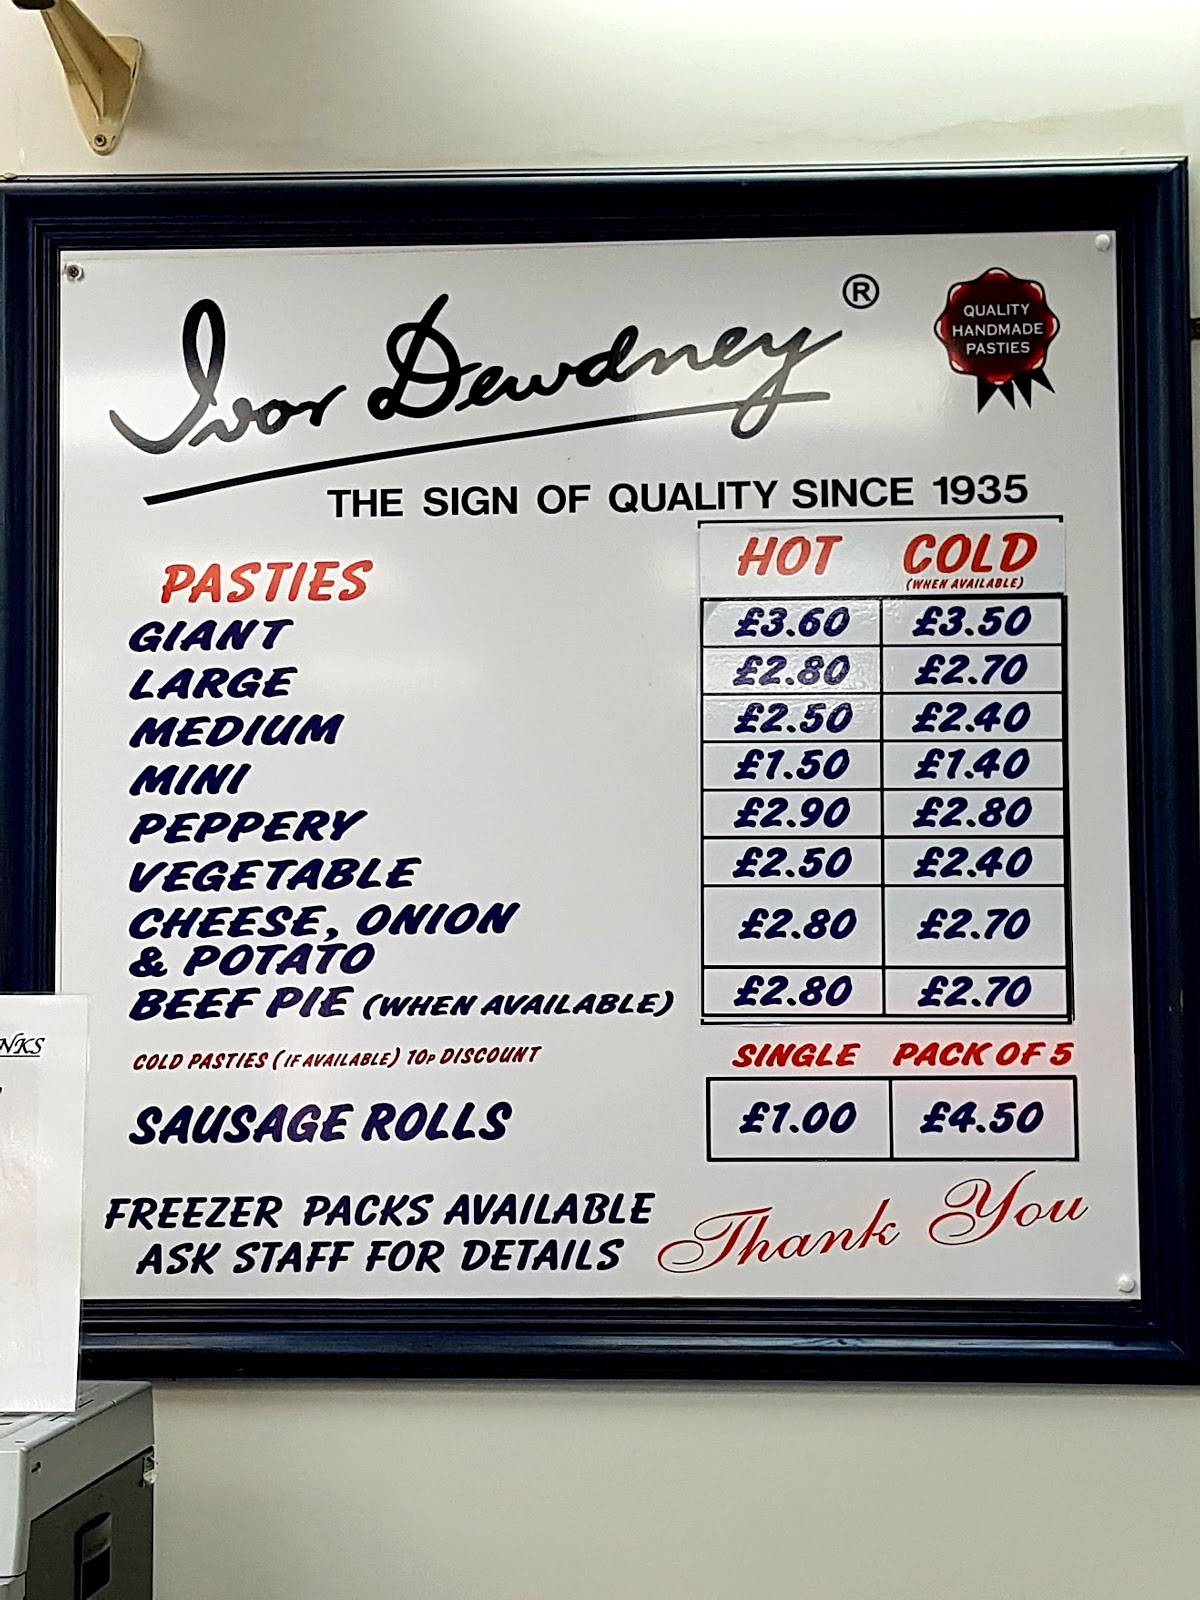 Ivor Dewdney ®
QUALITY
HANDMADE
PASTIES
THE SIGN OF QUALITY SINCE 1935
PASTIES HOT COLD
(WHEN AVAILABLE)
GIANT £3.60 £3.50
LARGE £2.80 £2.70
MEDIUM £2.50 £2.40
MINI £1.50 £1.40
PEPPERY £2.90 £2.80
VEGETABLE £2.50 £2.40
CHEESE, ONION
& POTATO £2.80 £2.70
BEEF PIE (WHEN AVAILABLE) £2.80 £2.70
COLD PASTIES (IF AVAILABLE) 10P DISCOUNT SINGLE PACK OF 5
SAUSAGE ROLLS £1.00 £4.50
FREEZER PACKS AVAILABLE
ASK STAFF FOR DETAILS
Thank You